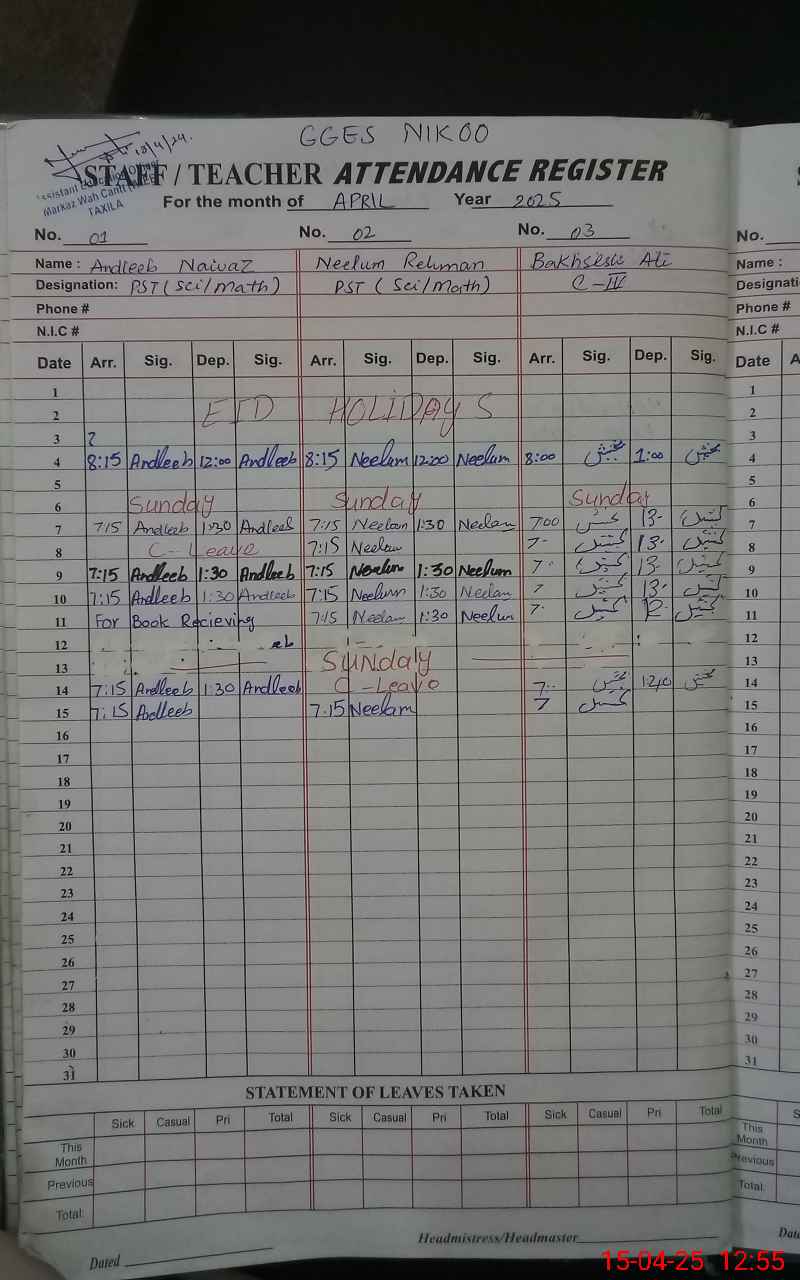 GGES NIKOO
13/4/24.
STAFF/TEACHER ATTENDANCE REGISTER
Assistant Education
Markaz Wah Cantt
TAXILA
For the month of APRIL Year 2025
No. 01 No. 02 No. 03 No.
Name : Andleeb Naivaz Neelum Rehman Bakhshish Ali Name :
Designation: PST (Sci/math) PST (Sci/Math) C-IV Designati
Phone # Phone #
N.I.C # N.I.C #
Date Arr. Sig. Dep. Sig. Arr. Sig. Dep. Sig. Arr. Sig. Dep. Sig. Date A
1 1
2 EID HOLIDAYS 2
3 ? 3
4 8:15 Andleeb 12:00 Andleeb 8:15 Neelum 12:00 Neelum 8:00 بخشش 1:00 بخشش 4
5 5
6 Sunday Sunday Sunday 6
7 7:15 Andleeb 1:30 Andleeb 7:15 Neelam 1:30 Neelam 700 13- 7
8 C-Leave 7:15 Neelam 7- 13- 8
9 7:15 Andleeb 1:30 Andleeb 7:15 Neelum 1:30 Neelum 7- 13- 9
10 7:15 Andleeb 1:30 Andleeb 7:15 Neelum 1:30 Neelam 7 13- 10
11 For Book Recieving 7:15 Neelam 1:30 Neelum 7- 12- 11
12 eb 12
13 SUNDAY 13
14 7:15 Andleeb 1:30 Andleeb C-Leave 7.. 14
15 7:15 Andleeb 7:15 Neelam 7 15
16 16
17 17
18 18
19 19
20 20
21 21
22 22
23 23
24 24
25 25
26 26
27 27
28 28
29 29
30 30
31 31
STATEMENT OF LEAVES TAKEN
Sick Casual Pri Total Sick Casual Pri Total Sick Casual Pri Total S
This Month This Month
Previous Previous
Total: Total:
Dated Headmistress/Headmaster Date
15-04-25 12:55